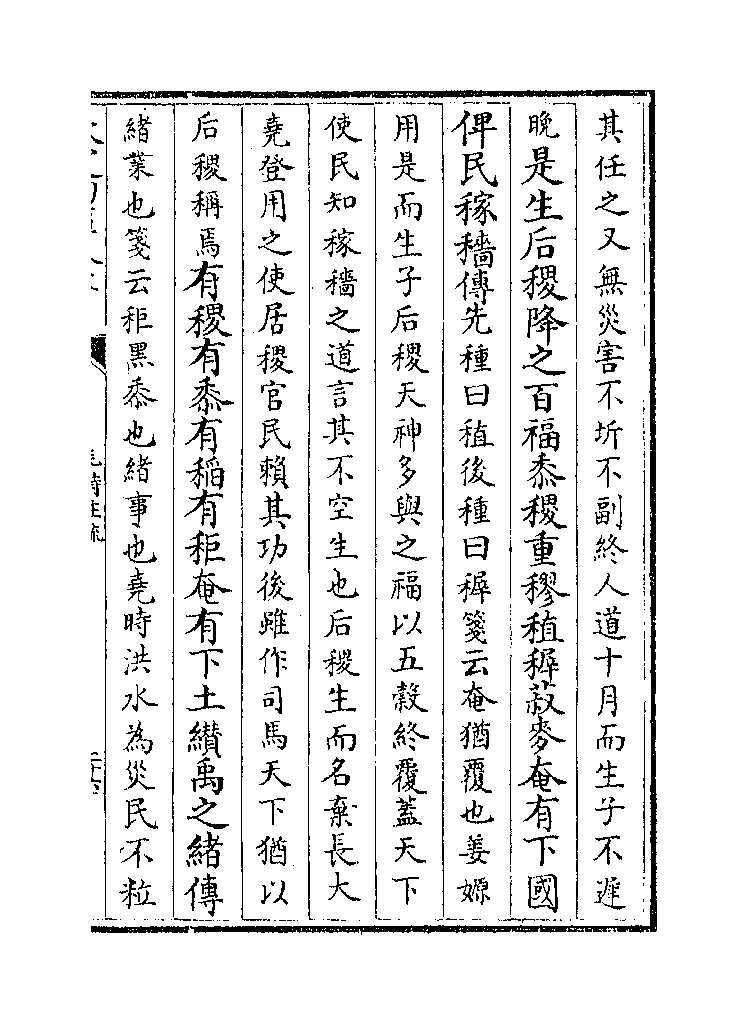 其任之又無災害不坼不副終人道十月而生子不遲
晚是生后稷降之百福黍稷重穋稙穉菽麥奄有下國
俾民稼穡傳先種曰稙後種曰穉箋云奄猶覆也姜嫄
用是而生子后稷天神多與之福以五穀終覆蓋天下
使民知稼穡之道言其不空生也后稷生而名棄長大
堯登用之使居稷官民賴其功後雖作司馬天下猶以
后稷稱焉有稷有黍有稻有秬奄有下土纘禹之緒傳
緒業也箋云秬黑黍也緒事也堯時洪水為災民不粒
毛詩注疏